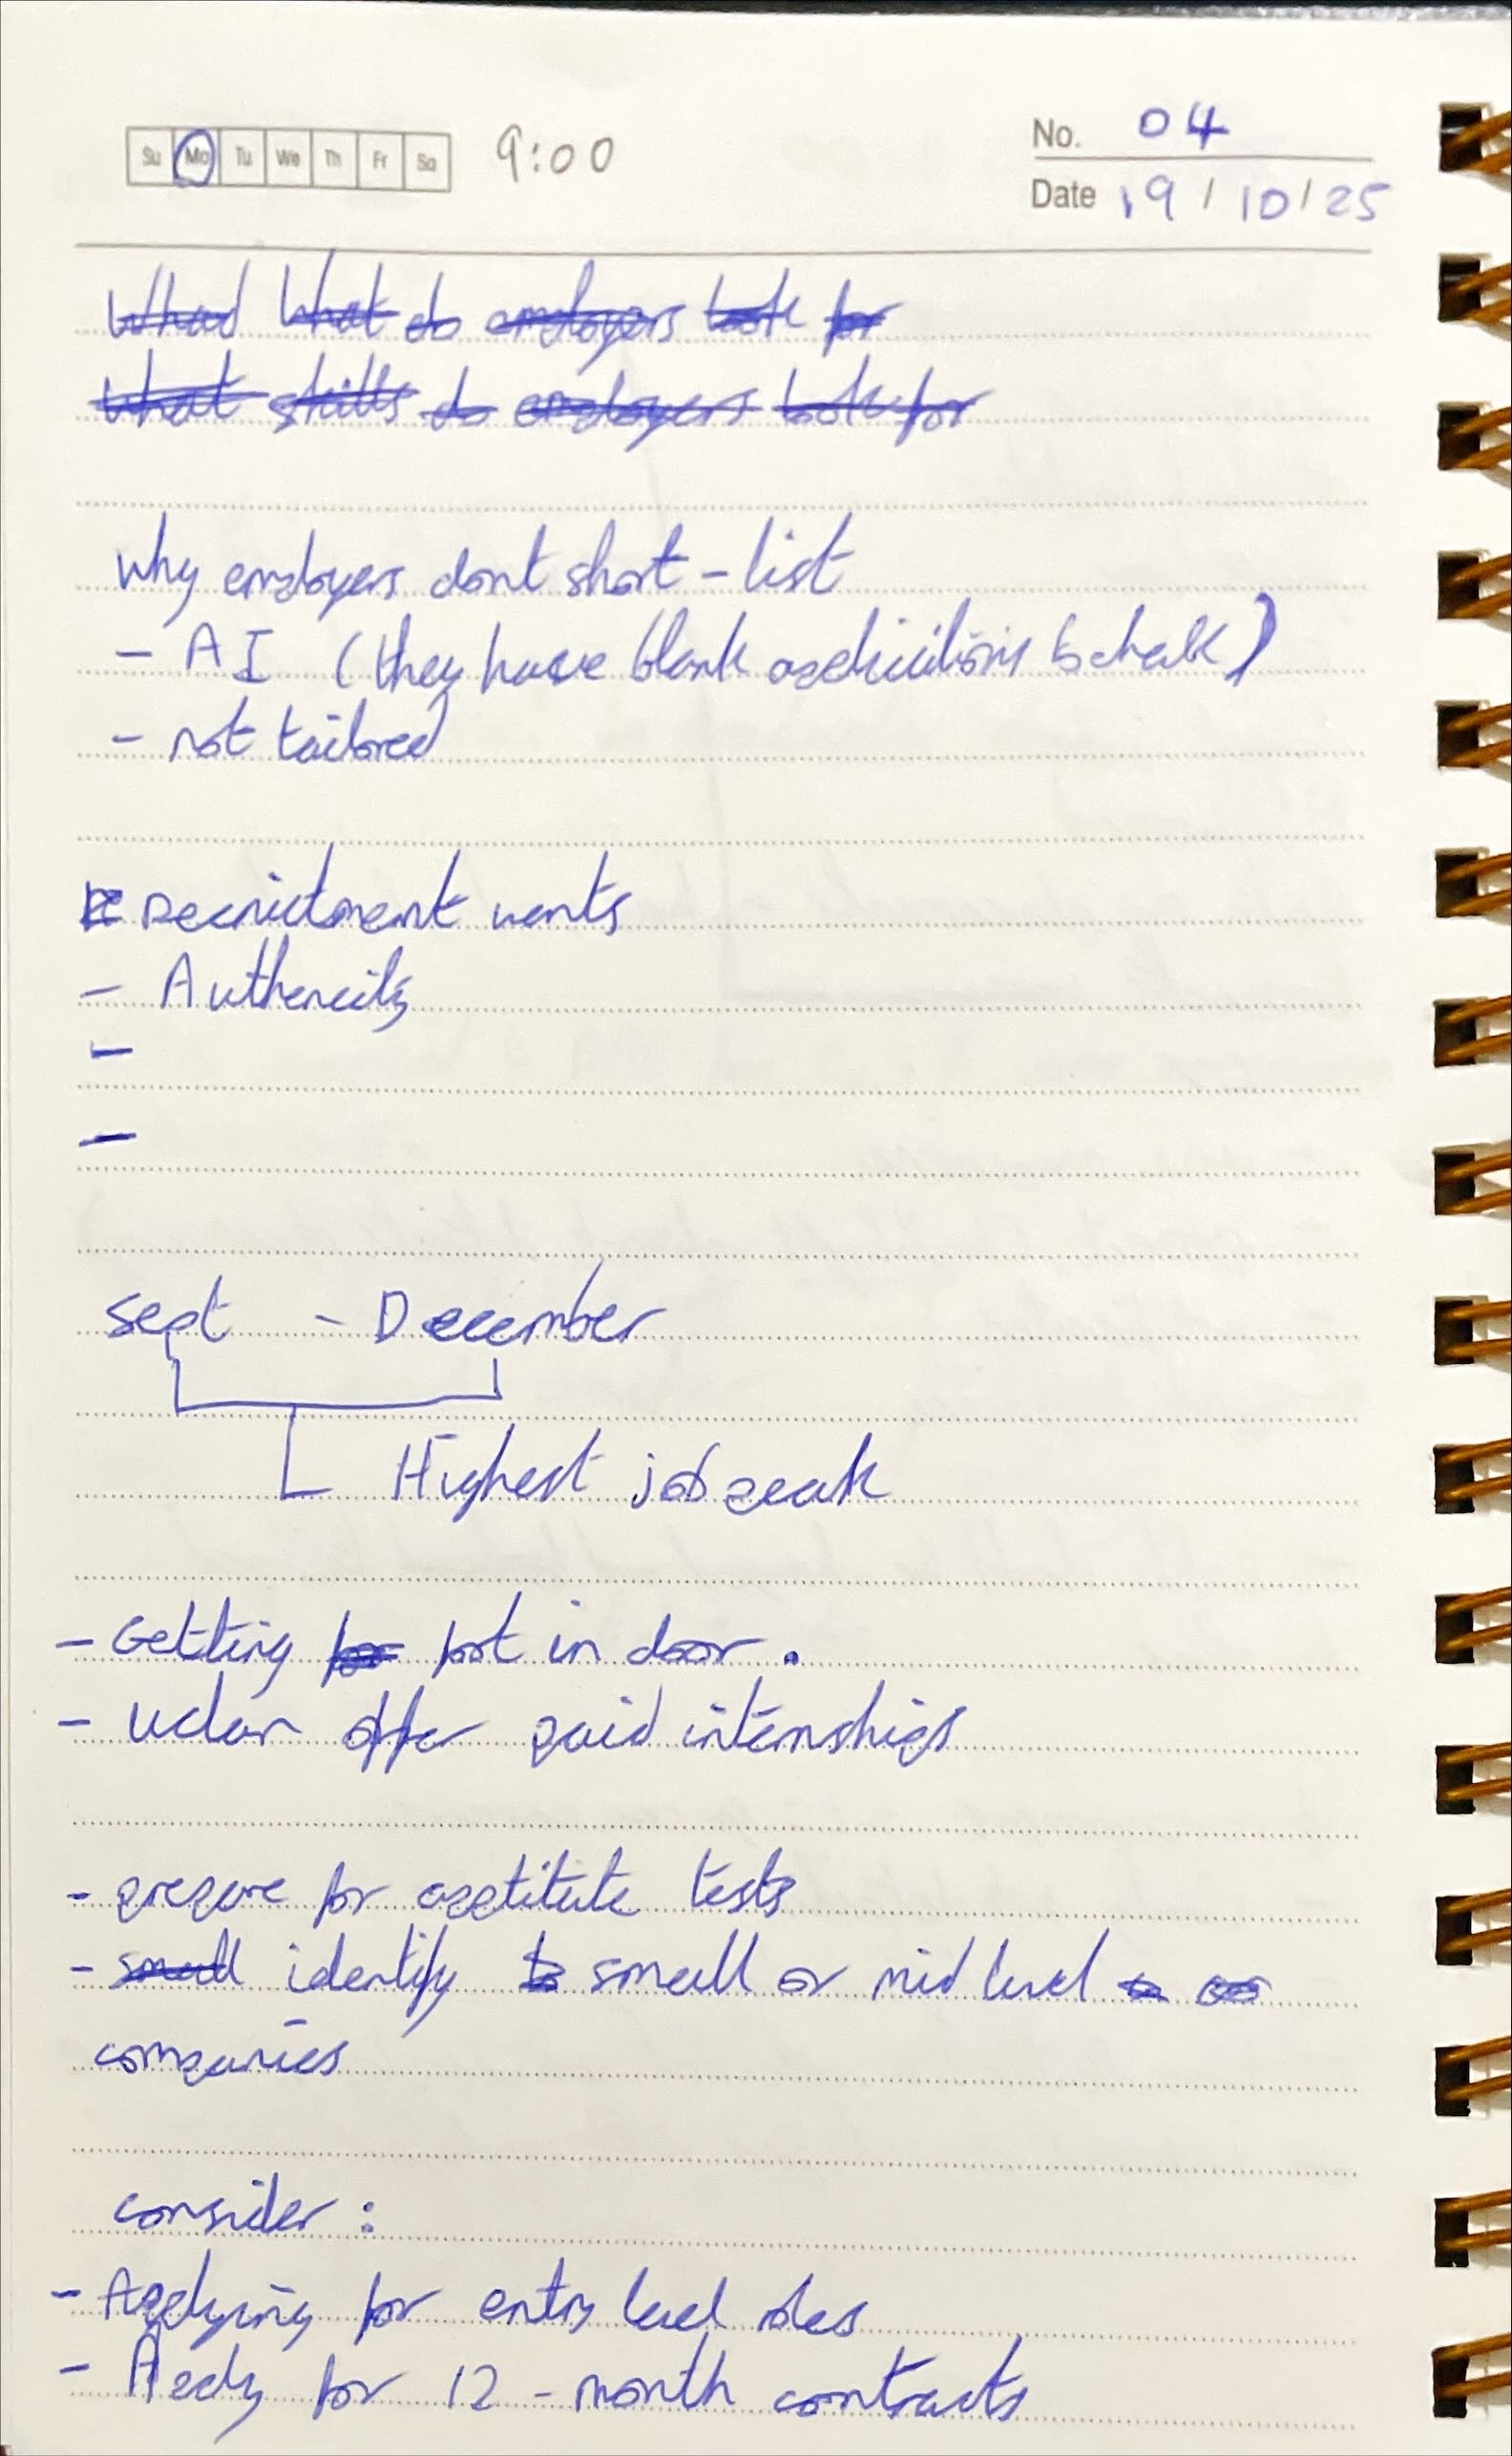 Su Mo Tu We Th Fr Sa 9:00
No. 04
Date 19/10/25
What do employers look for
What skills do employers look for
why employers dont short-list
- AI (they have blank applications to check)
- not tailored
recruitment wants
- Authencity
-
-
sept - December
Highest job peak
- Getting foot in door.
- Uclan offer paid internships
- prepare for apptitute tests
- small identify to small or mid level
companies
consider:
- Applying for entry level roles
- Apply for 12-month contracts